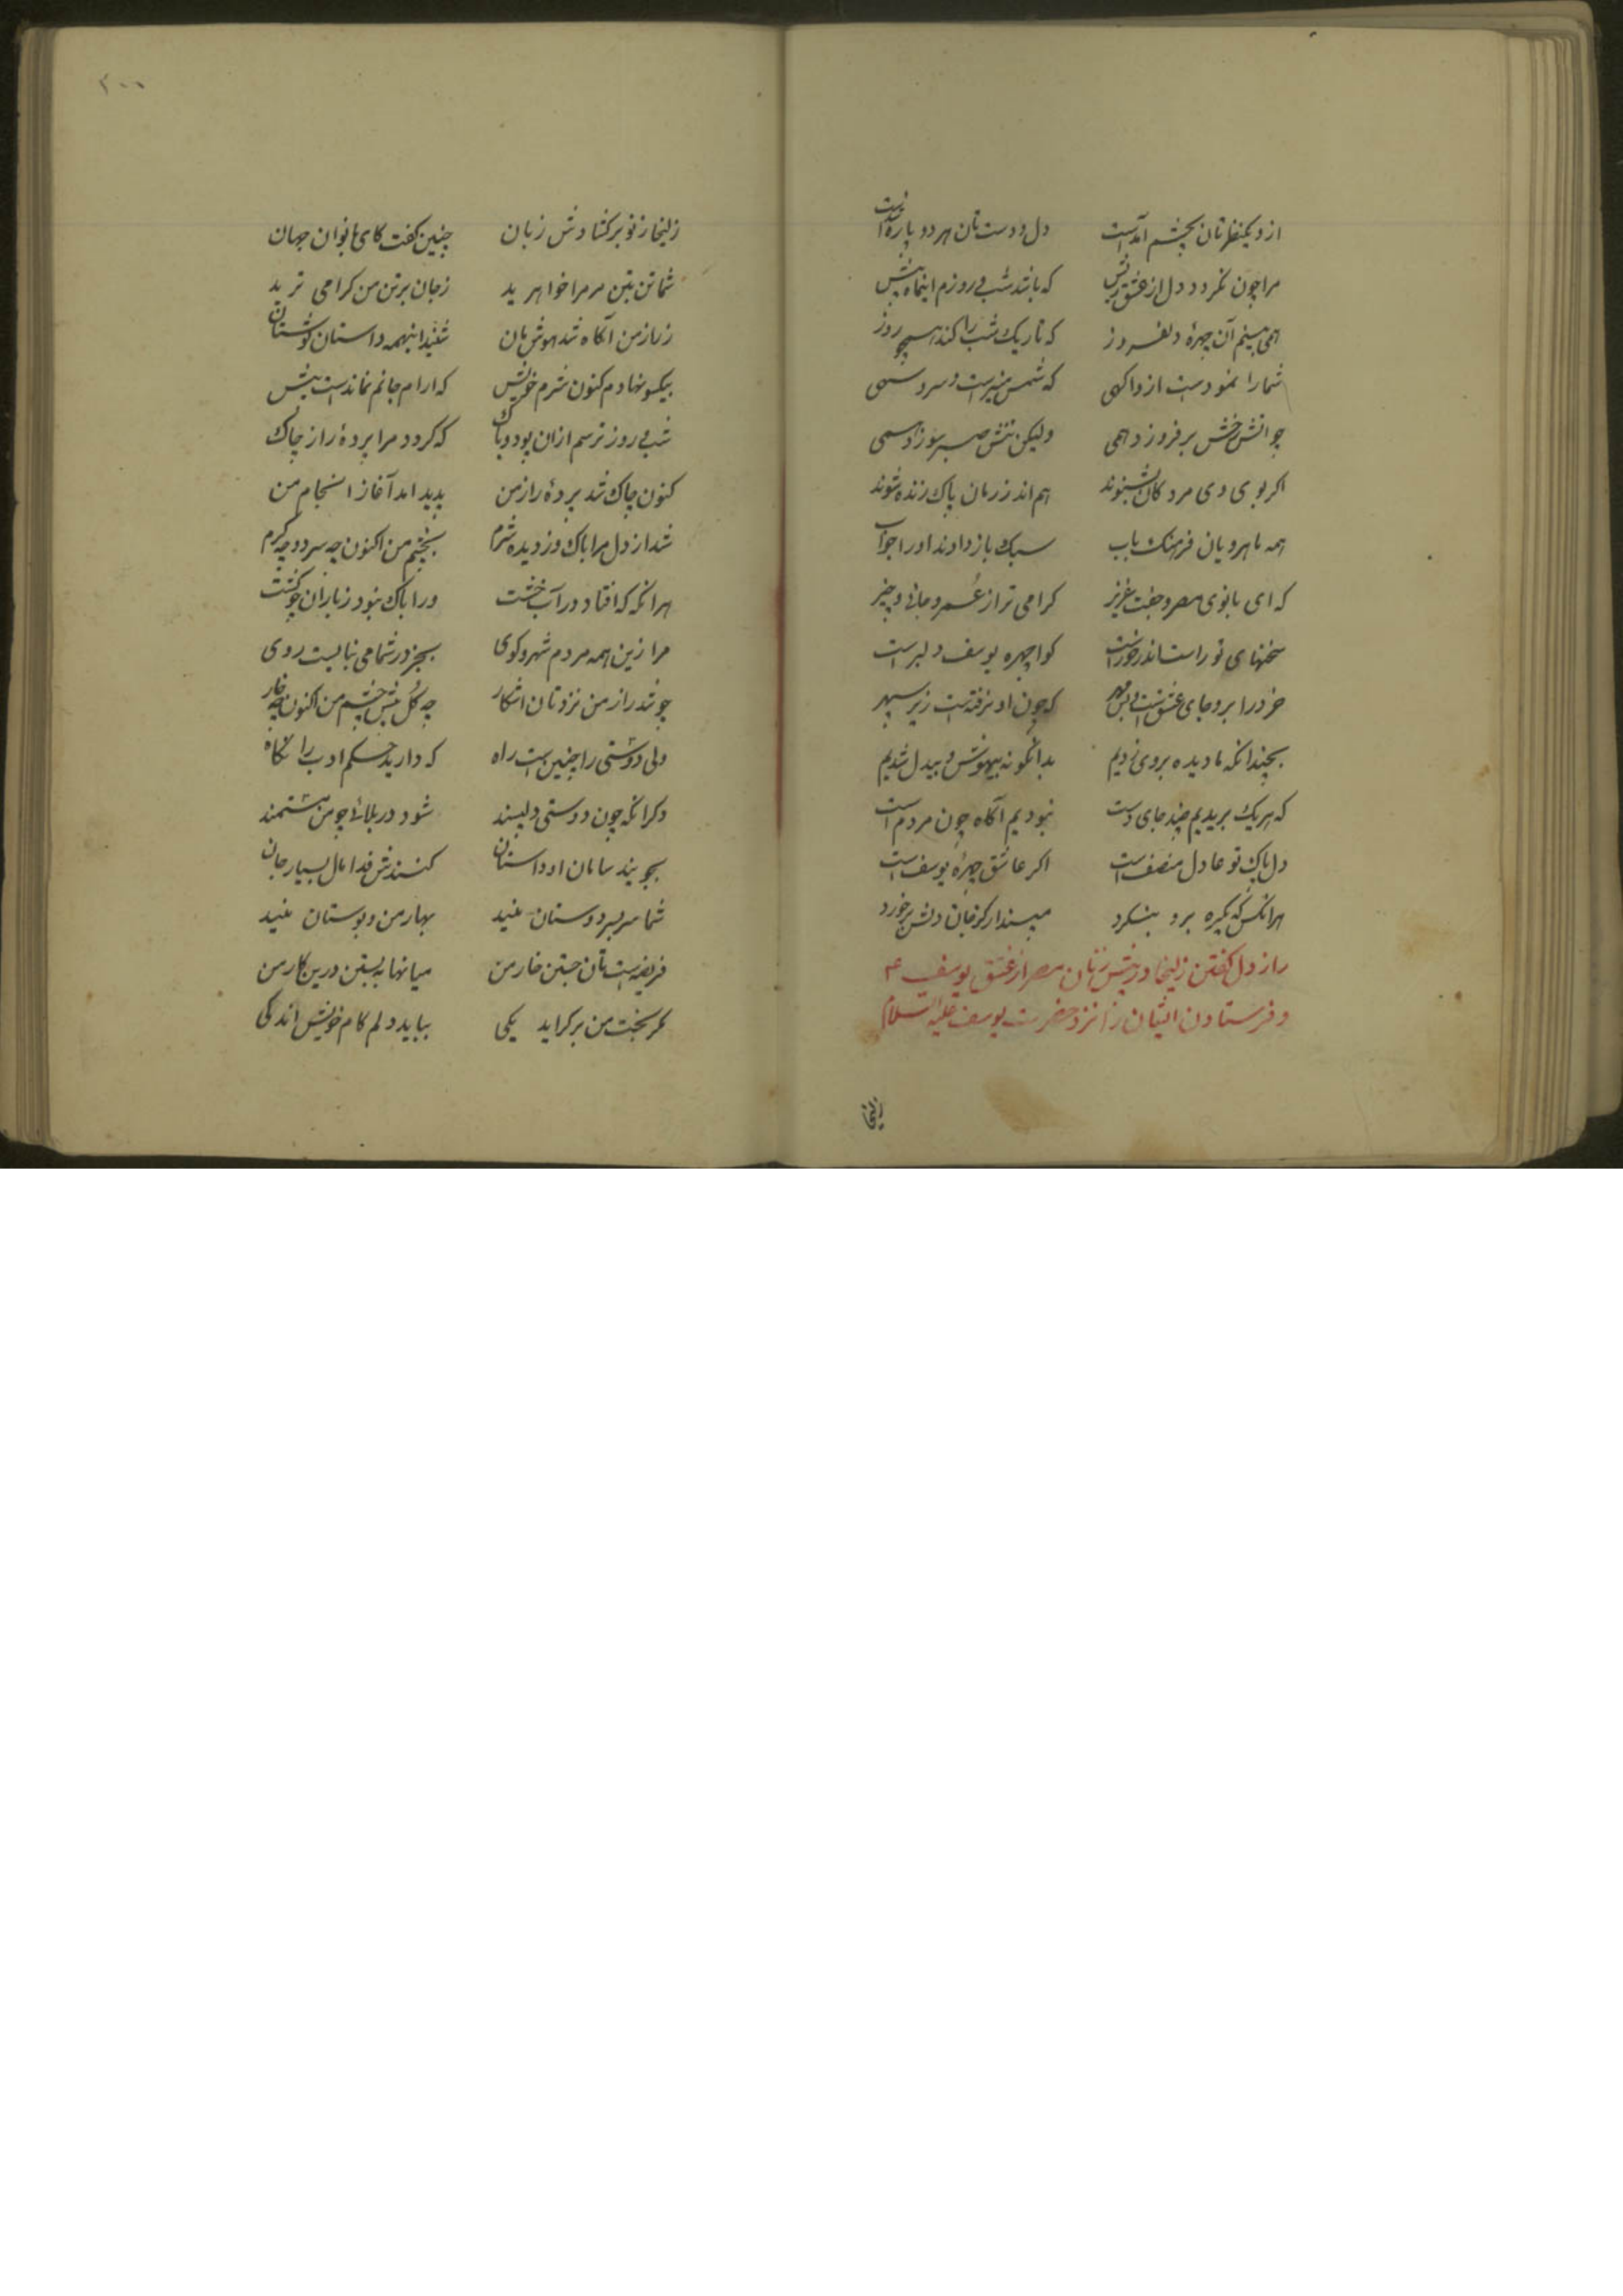 ازو یکنظرتان بچشم آمدست دل و دست تان هر دو پاره شدست
مرا چون نکردد دل از عشق ریش که باشد شب و روزم اینماه پیش
همی بینم آن چهرهٔ دلفروز که تاریک شب را کند همچو روز
شما را نمودست از و اکهی که شمس منیرست و سرو سهی
چو اتش رخش برفروزد همی ولیکن تنش صبر سوزد همی
اکر بوی وی مردکان بشنوند هم اندر زمان پاک زنده شوند
همه ماهرویان فرهنک یاب سبک باز دادند او را جواب
که ای بانوی مصر و جفت عزیز کرامی تر از عمر و جانی و چیز
سخنهای تو راست اندر خورست کوا چهره یوسف دلبرست
خرد را برو جای عشقست و مهر که چون او نرفتست زیر سپهر
بچندانکه ما دیده بر وی زدیم بدانکونه بیهوش و بیدل شدیم
که هر یک بریدیم چند جای دست نبودیم آکاه چون مردم است
دل پاک تو عادل منصف است اکر عاشق چهرهٔ یوسف است
هر انکس که یکره برو بنکرد مپندار کو جان و تن برخورد
راز دل کفتن زلیخا در پیش زنان مصر از عشق یوسف ع
و فرستادن ایشان را نزد حضرت یوسف علیه السلام
زلیخا
۲۰۰
زلیخا ز نو برکشادش زبان چنین کفت کای بانوان جهان
شما تن بتن مر مرا خواهرید ز جان بر تن من کرامی ترید
ز راز من آکاه شد هوش تان شنید اینهمه داستان کوش تان
بیکسو نهادم کنون شرم خویش که ارام جانم نماندست بیش
شب و روز ترسم ازان بود و باک که کردد مرا پردهٔ راز چاک
کنون چاک شد پردهٔ راز من پدید امد آغاز انجام من
شد از دل مرا باک وز دیده شرم بچشم من اکنون چه سرد و چه کرم
هرانکه که افتاد در آب خشت ورا باک نبود ز باران چو کشت
مرا زین همه مردم شهر و کوی بجز در شما می نبایست روی
چو شد راز من نزدتان اشکار چه کل پیش چشم من اکنون چه خار
ولی دوستی را چنین است راه که دارید حکم ادب را نکاه
دکر انکه چون دوستی دلپسند شود در بلائی چو من مستمند
بجویند سامان او دوستان کنندش فدا مال بسیار جان
شما سربسر دوستان منید بهار من و بوستان منید
فریضه است تان جستن خار من میانها به بستن درین کار من
مکر بخت من برکراید یکی بیابد دلم کام خویش اندکی